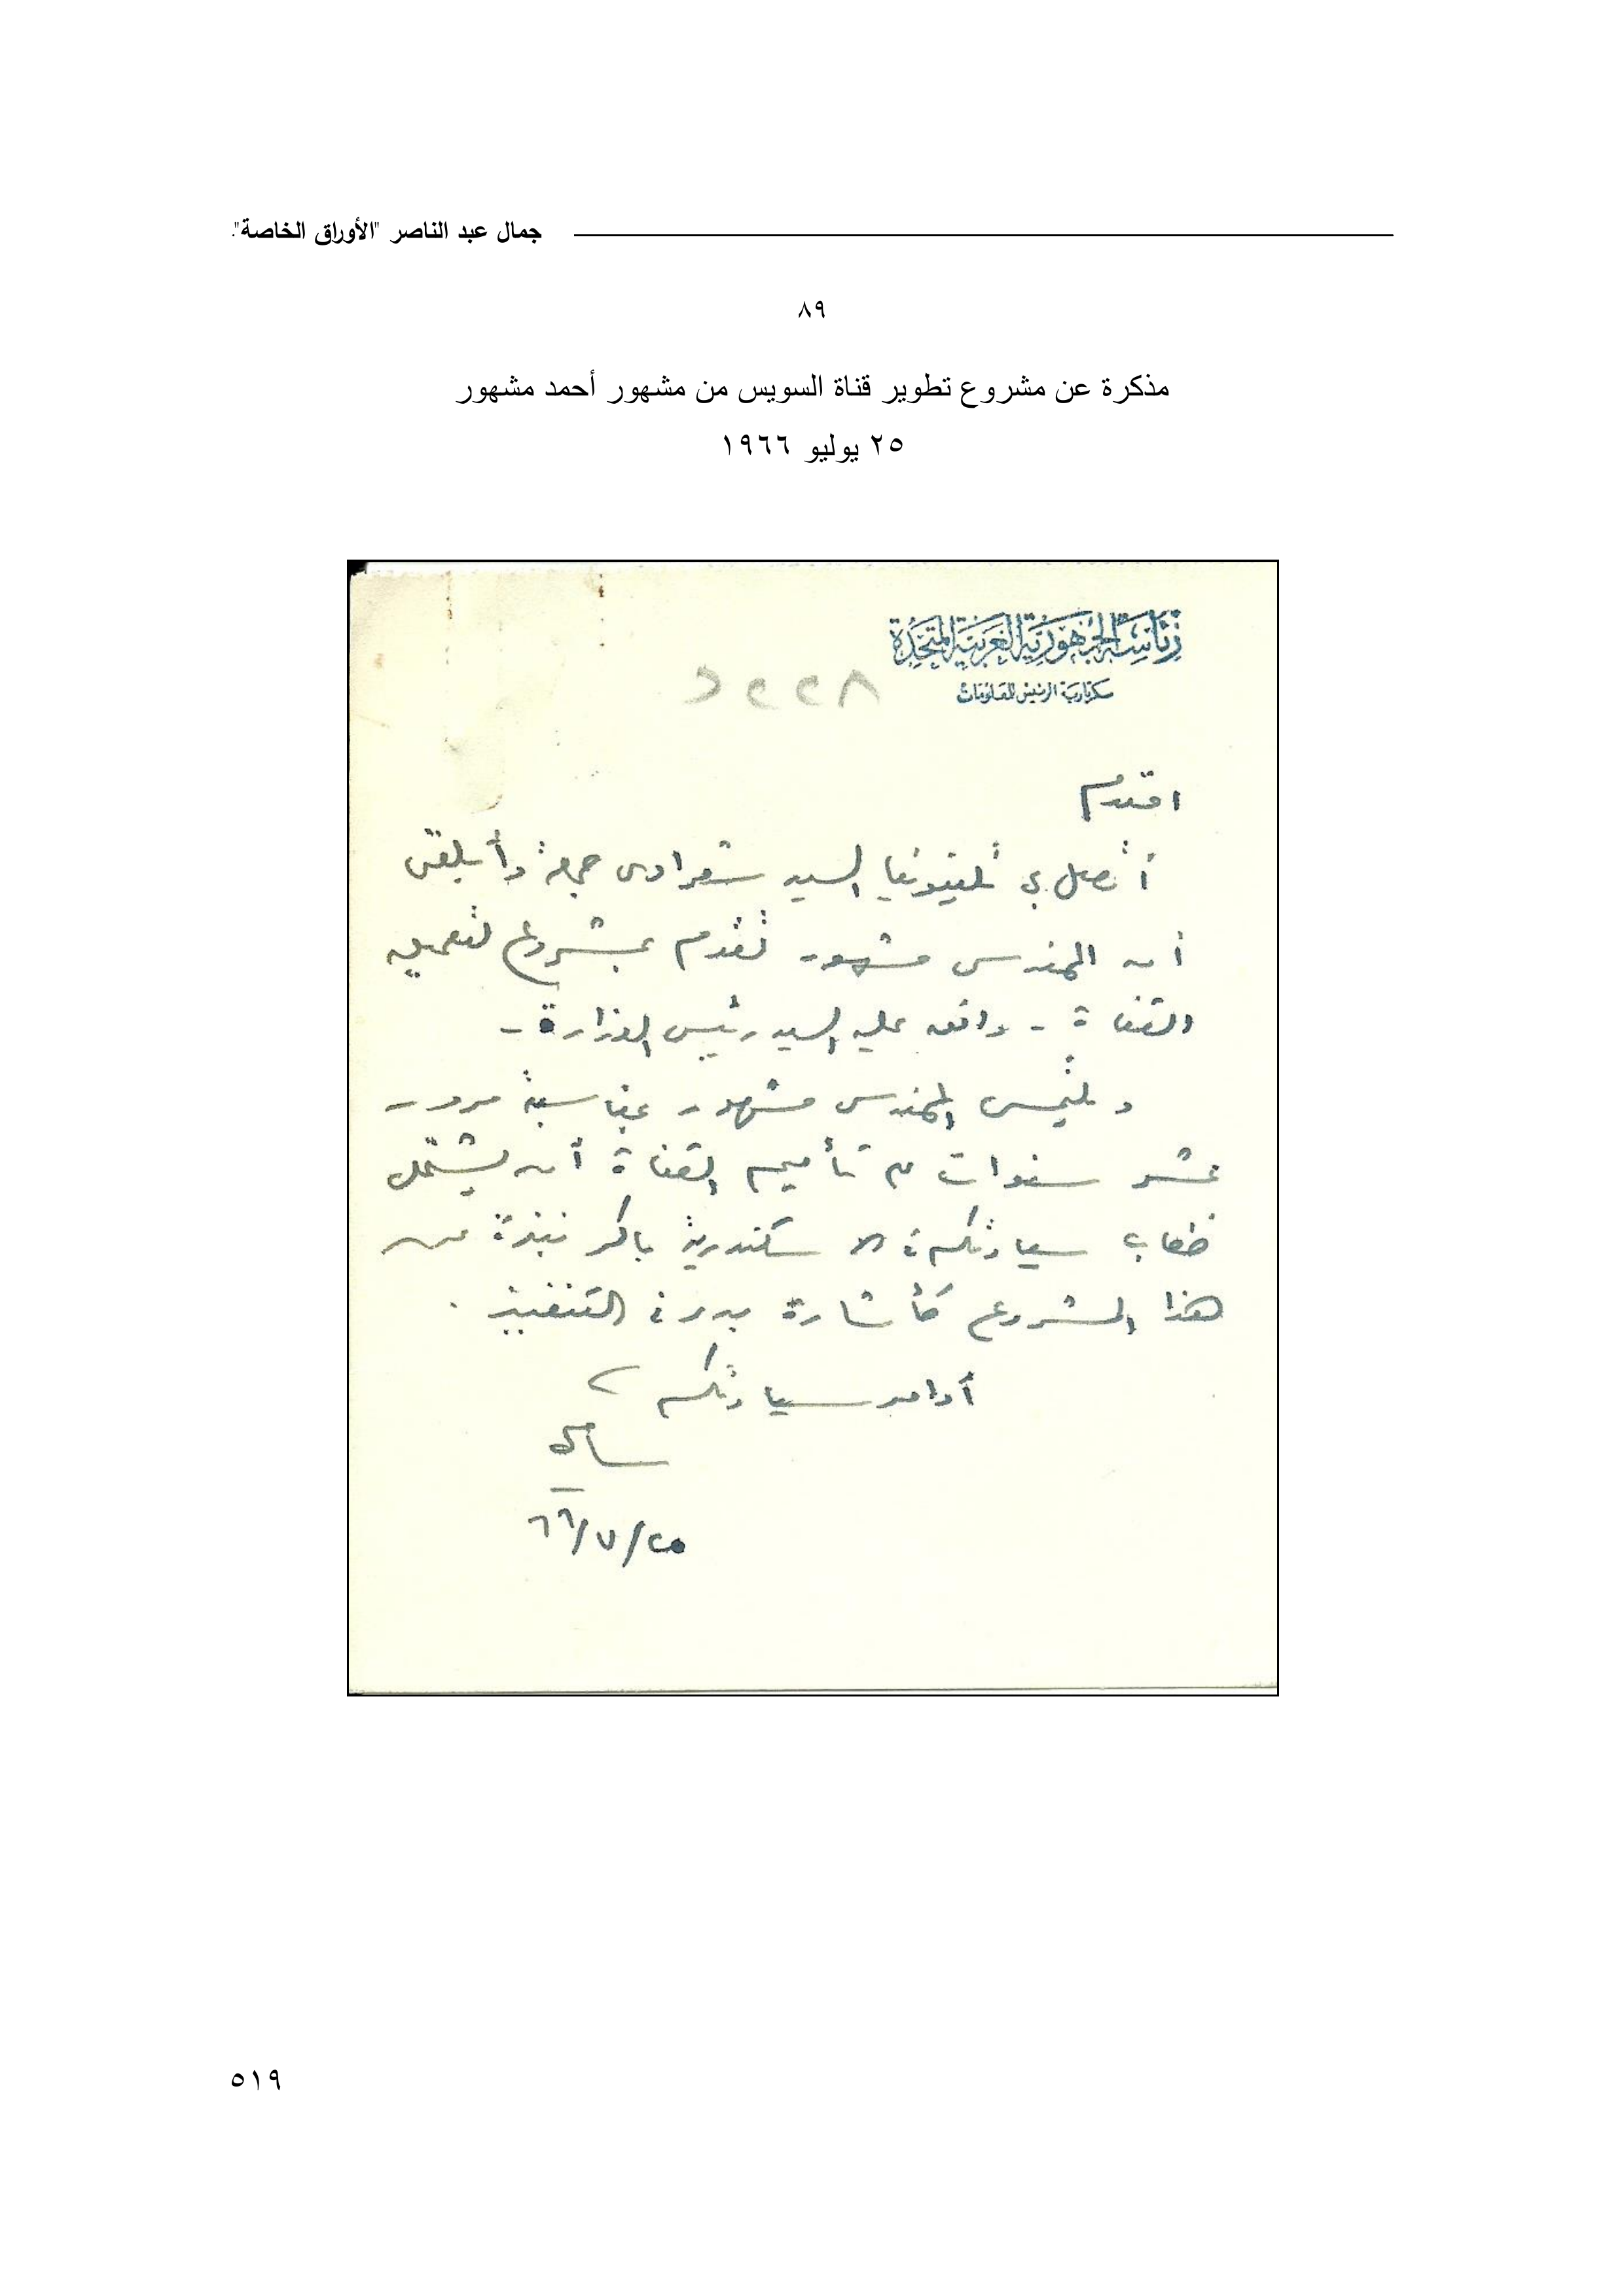 جمال عبد الناصر "الأوراق الخاصة".
٨٩
مذكرة عن مشروع تطوير قناة السويس من مشهور أحمد مشهور
٢٥ يوليو ١٩٦٦
رئاسة الجمهورية العربية المتحدة
سكرتارية الرئيس للمعلومات
افندم
أتصل بي تليفونيا السيد شعراوى جمعة وأبلغنى
أن المهندس مشهور تقدم بمشروع لتعميق
القناة - وافق عليه السيد رئيس الوزارة -
ويلتمس المهندس مشهور بمناسبة مرور
عشر سنوات من تأميم القناة أن يشتمل
خطاب سيادتكم فى الاسكندرية باكر نبذة عن
هذا المشروع كأشارة بدء فى التنفيذ .
أوامر سيادتكم
سامى
٦٦/٧/٢٥
٥١٩